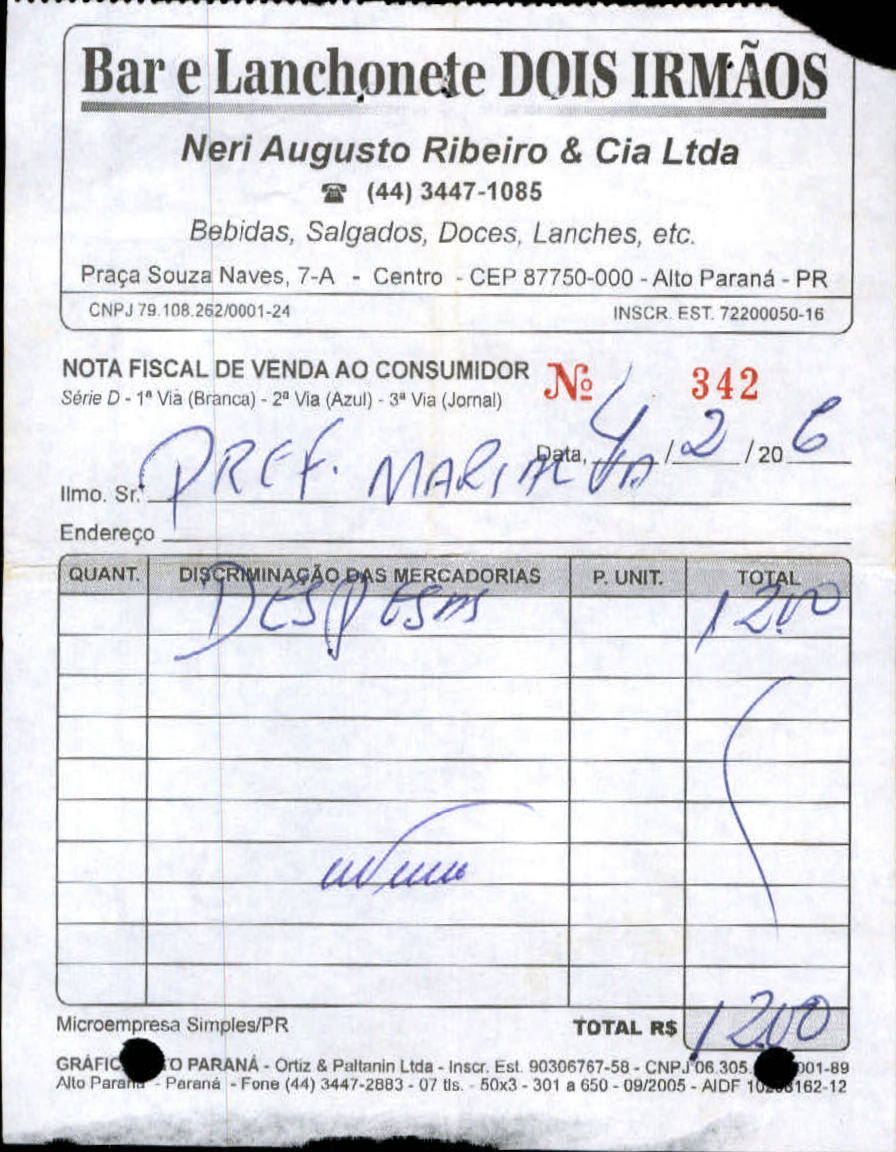 Bar e Lanchonete DOIS IRMÃOS
Neri Augusto Ribeiro & Cia Ltda
☎ (44) 3447-1085
Bebidas, Salgados, Doces, Lanches, etc.
Praça Souza Naves, 7-A - Centro - CEP 87750-000 - Alto Paraná - PR
CNPJ 79.108.262/0001-24 INSCR. EST. 72200050-16
NOTA FISCAL DE VENDA AO CONSUMIDOR Nº 342
Série D - 1ª Via (Branca) - 2ª Via (Azul) - 3ª Via (Jornal)
Data, 4 / 2 / 20 6
Ilmo. Sr. PREF. MARIALVA
Endereço
QUANT. DISCRIMINAÇÃO DAS MERCADORIAS P. UNIT. TOTAL
DESPESAS 12.00
Microempresa Simples/PR TOTAL R$ 12.00
PARANÁ - Ortiz & Paltanin Ltda - Inscr. Est. 90306767-58 - CNPJ 06.305. 001-89
Alto Paraná - Paraná - Fone (44) 3447-2883 - 07 tls. - 50x3 - 301 a 650 - 09/2005 - AIDF